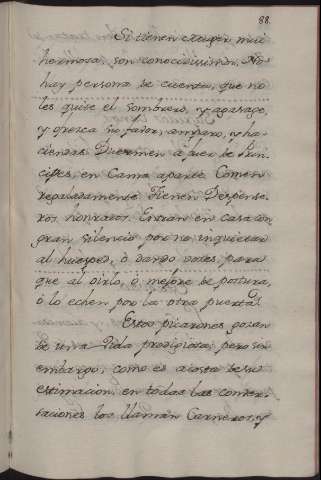 88.
Si tienen muger mui
hermosa, son conocidissimos. No
hay persona de cuenta, que no
les quite el sombrero, y agasage,
y ofresca su favor, amparo, y ha-
ciendas. Duermen a fuer de Prin-
cipes, en Cama aparte. Comen
regaladamente. Tienen Despense-
ros honrados. Entran en casa con
gran silencio por no inquietar
al huesped, ò dando voces, para
que al oirlo, ò mejore de postura,
ò lo echen por la otra puerta.
Estos picarones gozan
de una Vida prodigiosa; pero sin
embargo, como es acosta de su
estimacion, en todas las conver-
saciones los llaman Carneros, y